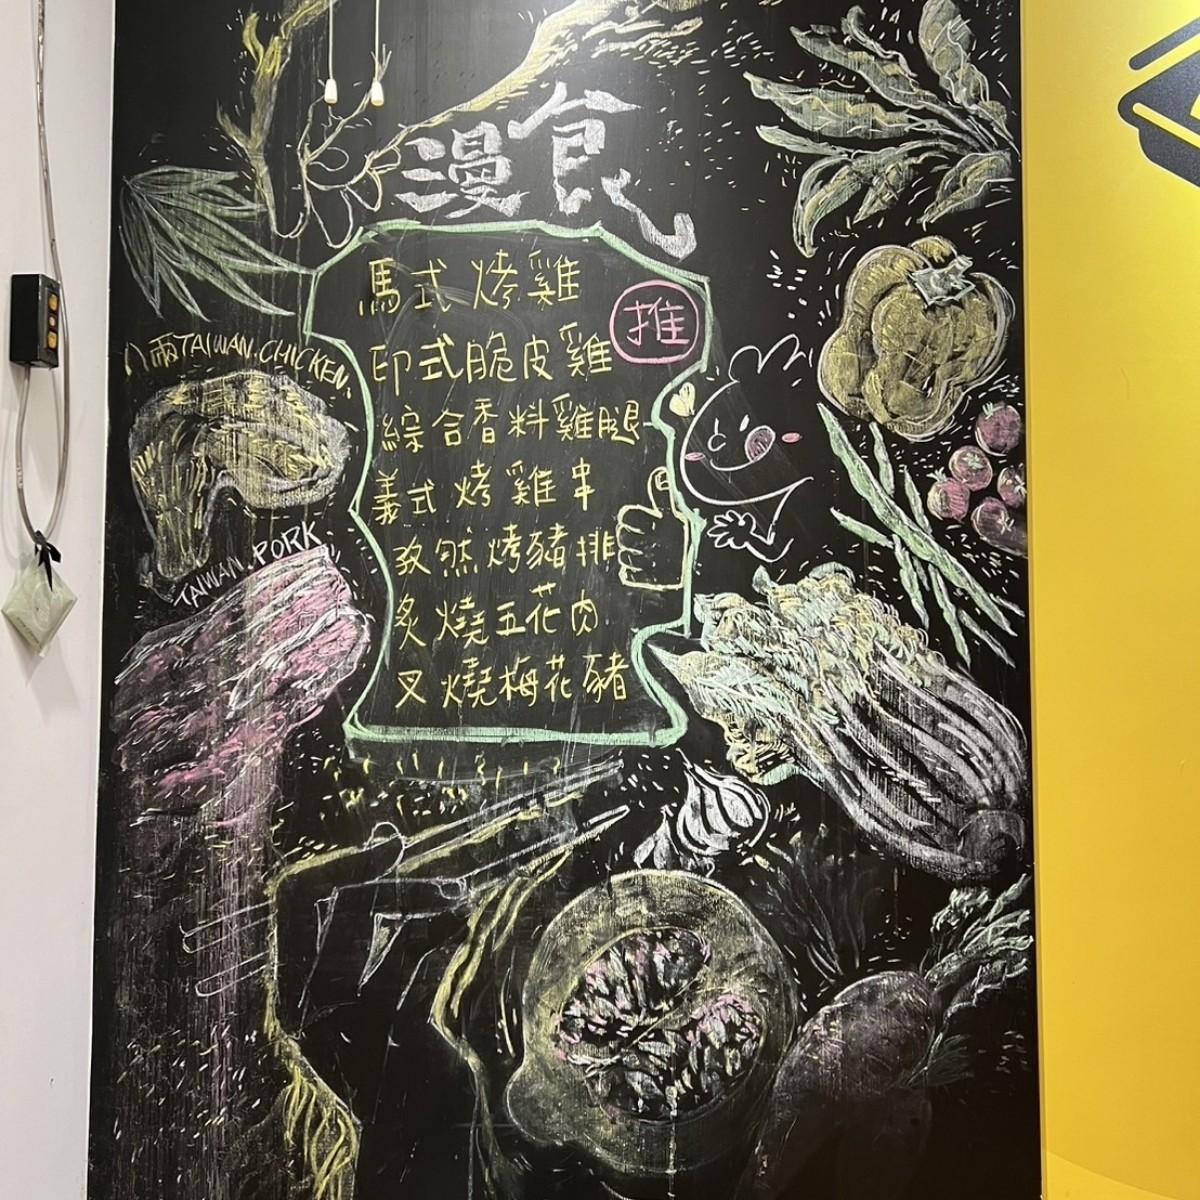 漫食
馬式烤雞
推
印式脆皮雞
綜合香料雞腿
義式烤雞串
孜然烤豬排
炙燒五花肉
叉燒梅花豬
八兩TAIWAN.CHICKEN.
TAIWAN.PORK